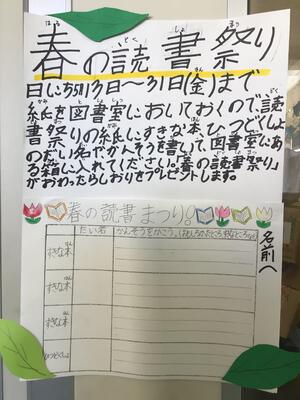 春の読書祭り
はる どく しょ まつ
日にち5月13日〜31日(金)まで
紙を図書室においておくので、読
書祭りの紙にすきな本、ひつどくしょ
のだい名やかんそうを書いて、図書室にあ
る箱に入れてください。「春の読書祭り」
がおわったらしおりをプレゼントします。
春の読書まつり。
名前へ
だい名
かんそうをかこう。
すきな本
すきな本
すきな本
ひつどくしょ